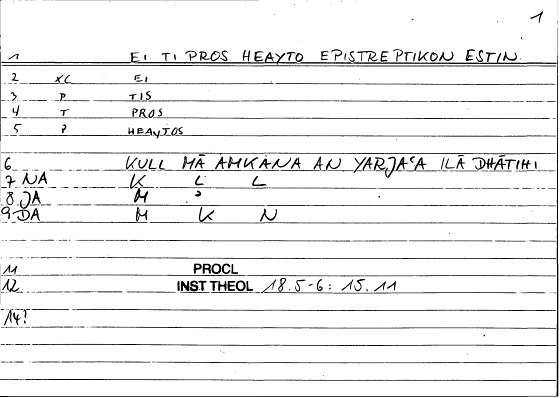 1
1 EI TI PROS HEAYTO EPISTREPTIKON ESTIN.
2 XC EI
3 P TIS
4 T PROS
5 ? HEAYTOS
6 KULL MĀ AMKANA AN YARJAʿA ILĀ DHĀTIHI
7 NA K L L
8 JA M ?
9 DA M K N
11 PROCL
12 INST THEOL 18.5-6: 15.11
14?